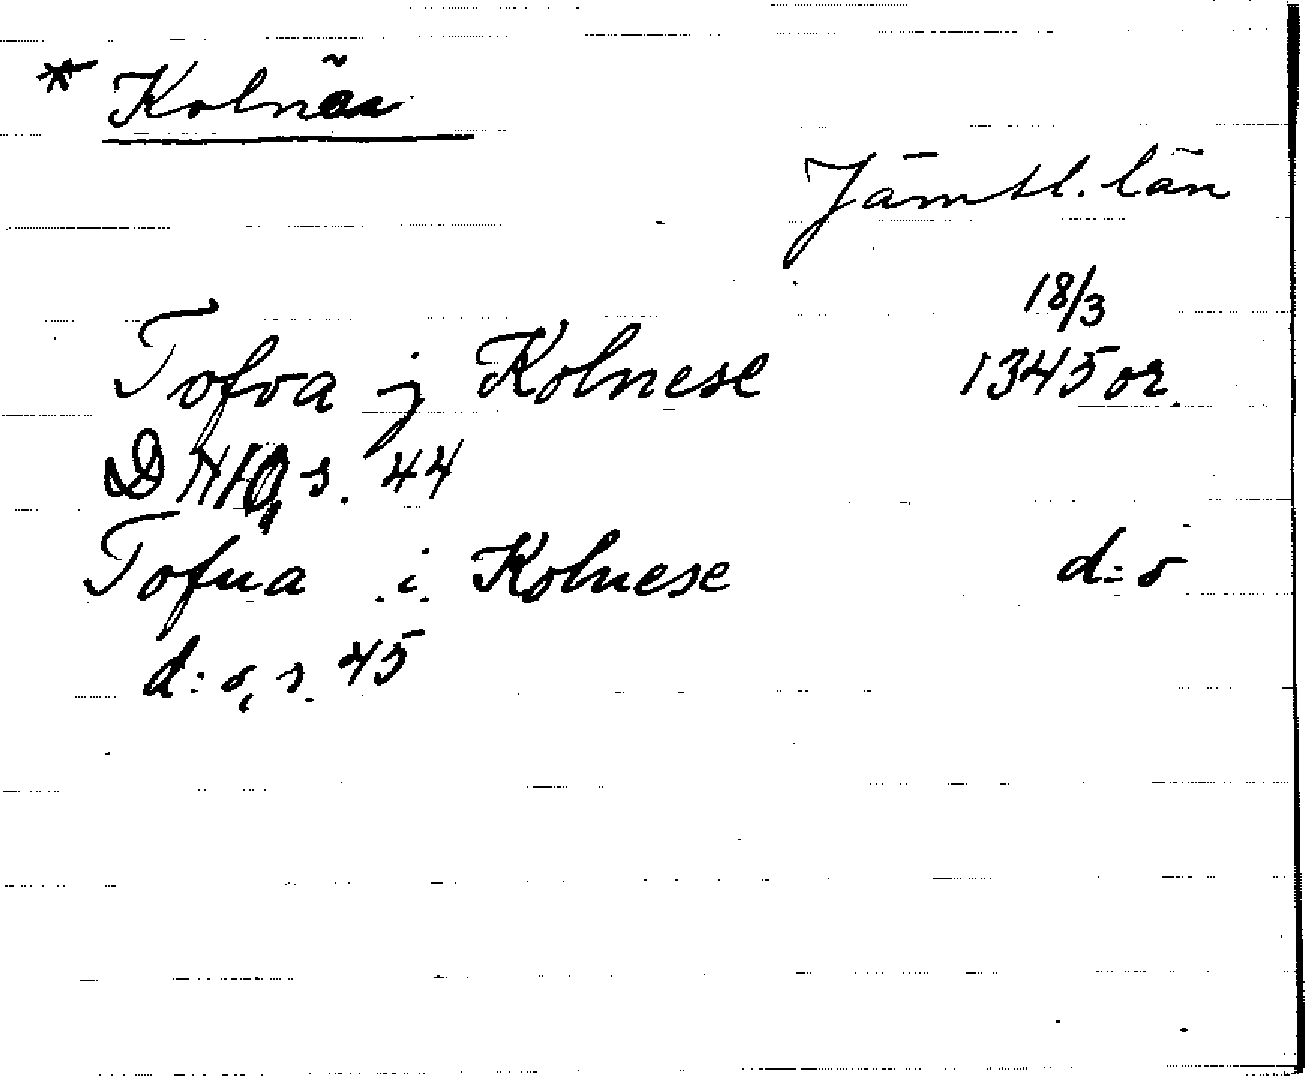 * Kolnäs
Jämtl. län
18/3
Tofva j Kolnese 1345 or.
D NHQ, s. 44
Tofua i Kolnese d:o
d:o, s. 45